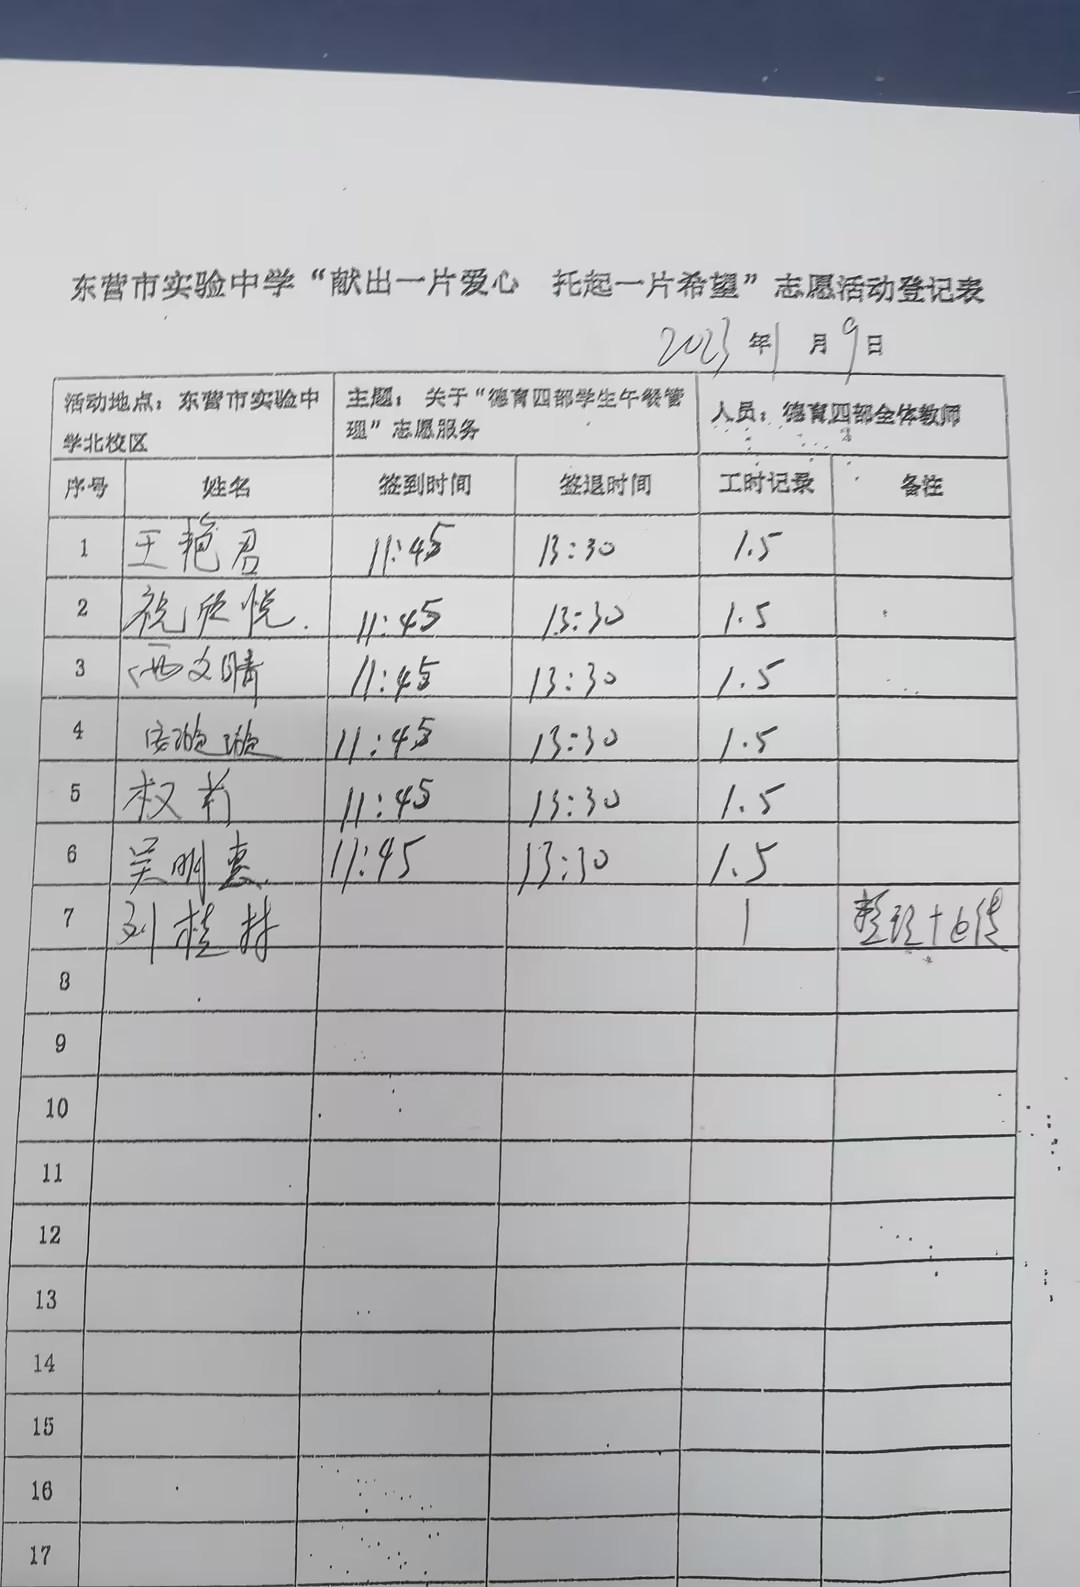 东营市实验中学“献出一片爱心 托起一片希望”志愿活动登记表
2023年1月9日
活动地点：东营市实验中学北校区 主题：关于“德育四部学生午餐管理”志愿服务 人员：德育四部全体教师
序号 姓名 签到时间 签退时间 工时记录 备注
1 王艳君 11:45 13:30 1.5
2 祝欣悦. 11:45 13:30 1.5
3 文晴 11:45 13:30 1.5
4 11:45 13:30 1.5
5 权莉 11:45 13:30 1.5
6 吴明惠 11:45 13:30 1.5
7 刘桂林 1 整理+上传
8
9
10
11
12
13
14
15
16
17